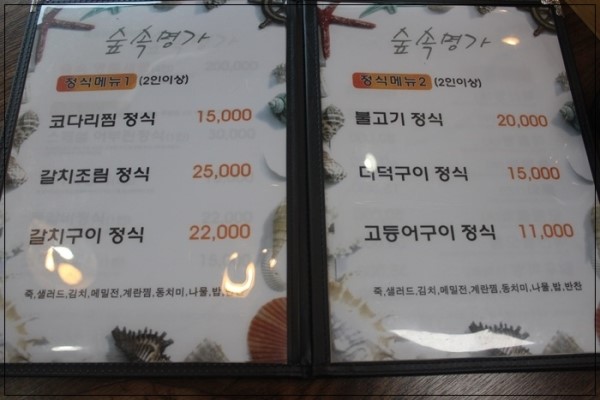 숲속명가
정식메뉴1 (2인이상)
코다리찜 정식 15,000
갈치조림 정식 25,000
갈치구이 정식 22,000
죽,샐러드,김치,메밀전,계란찜,동치미,나물,밥,반찬
숲속명가
정식메뉴2 (2인이상)
불고기 정식 20,000
더덕구이 정식 15,000
고등어구이 정식 11,000
죽,샐러드,김치,메밀전,계란찜,동치미,나물,밥,반찬